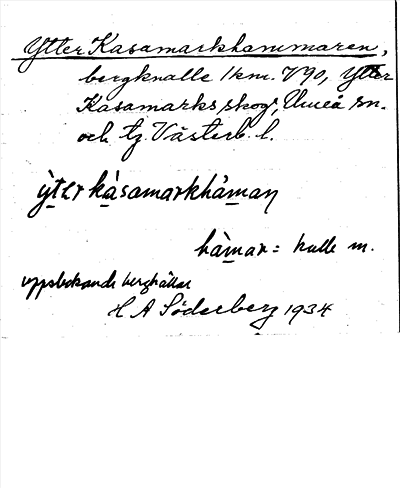 Ytter Kasamarkhammaren,
bergknalle 1 km. V 90, Ytter
Kasamarks skog, Umeå sn.
och tg. Västerb. l.
ỳtər kàsamarkhàman
hàmar = kulle m.
uppstickande berghällar
H A Söderberg 1934